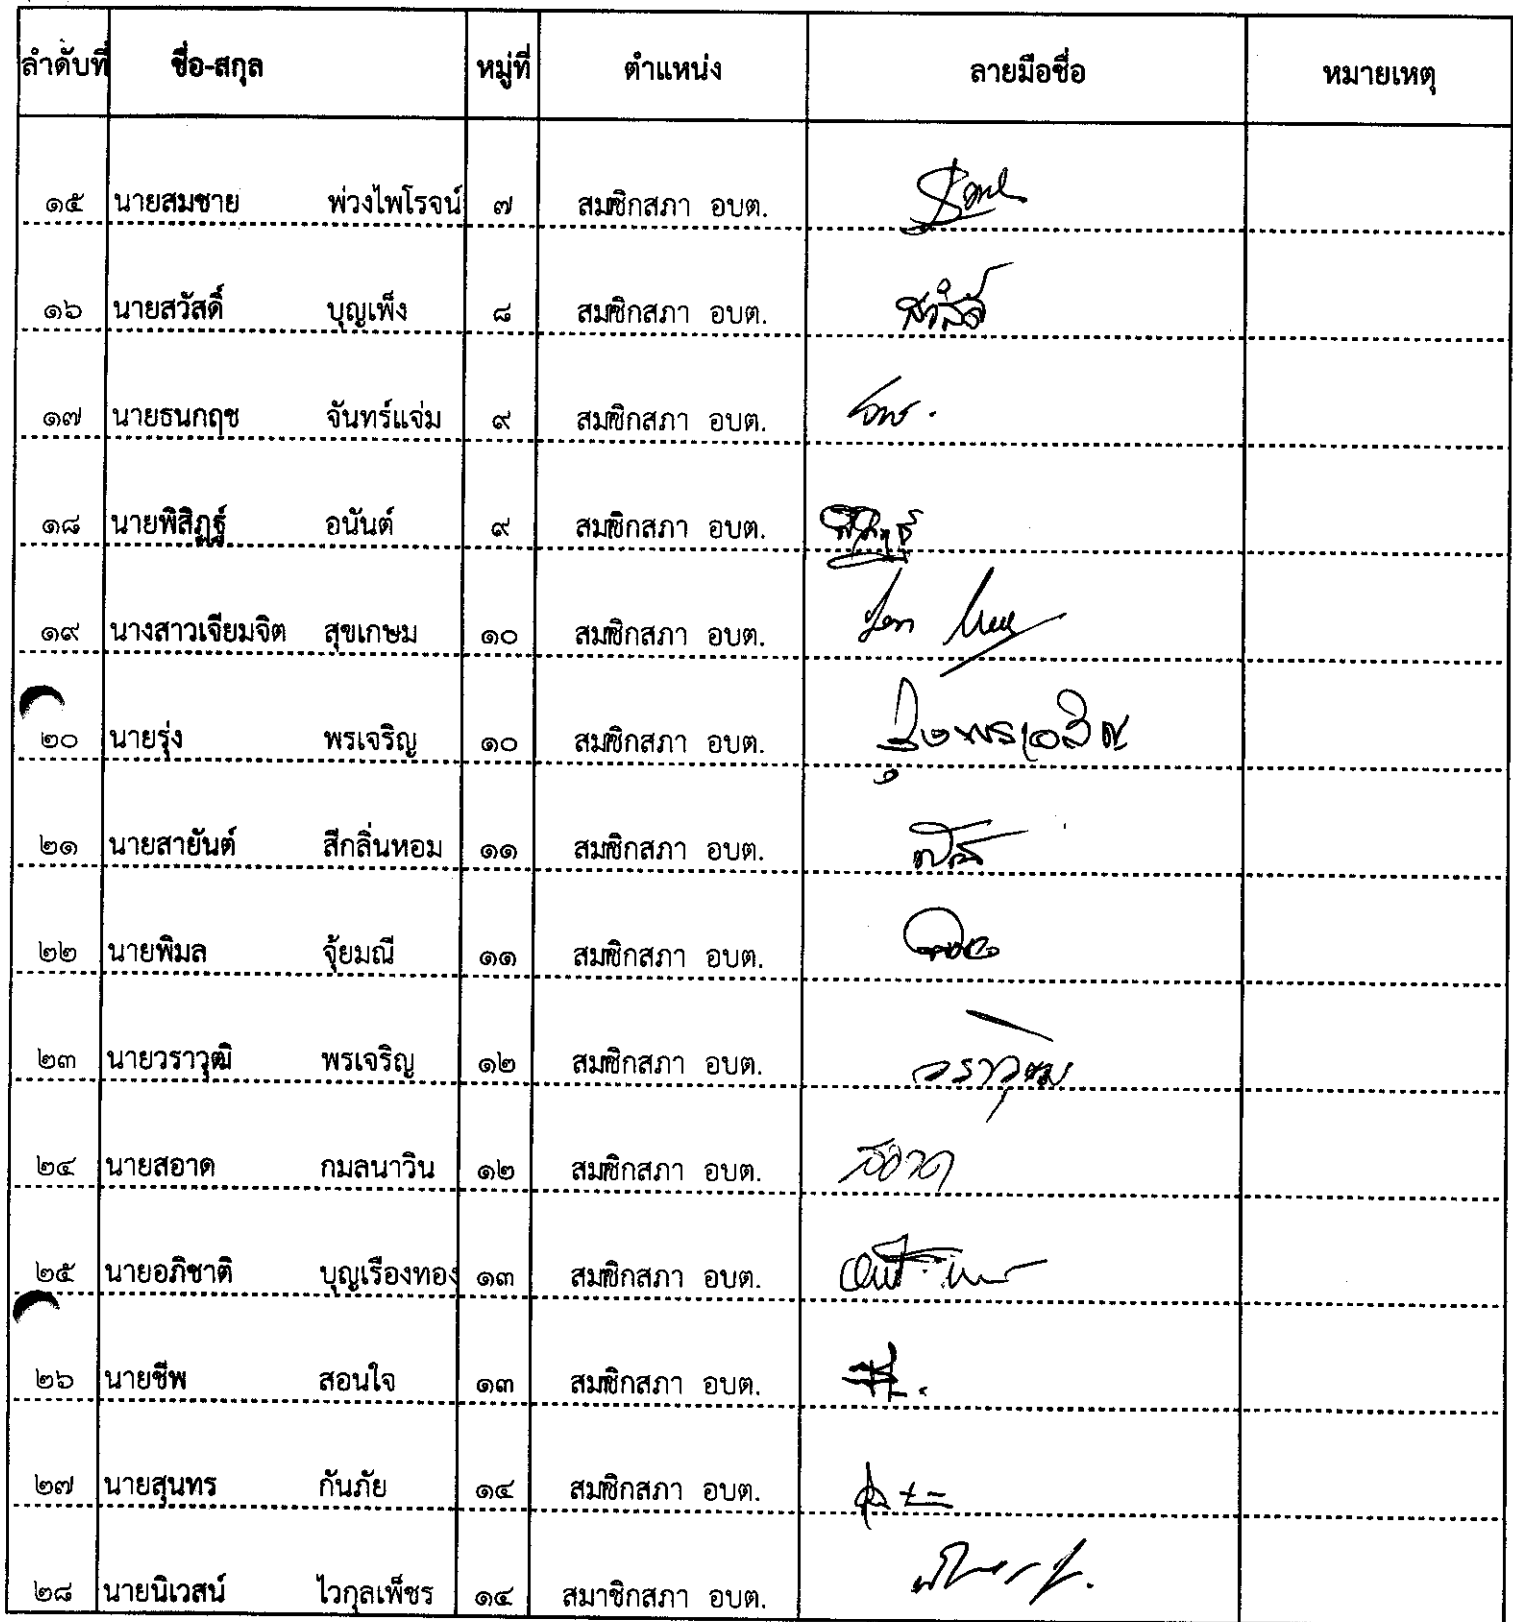 ลำดับที่ ชื่อ-สกุล หมู่ที่ ตำแหน่ง ลายมือชื่อ หมายเหตุ
๑๕ นายสมชาย พ่วงไพโรจน์ ๗ สมชิกสภา อบต.
๑๖ นายสวัสดิ์ บุญเพ็ง ๘ สมชิกสภา อบต. สวัสดิ์
๑๗ นายธนกฤช จันทร์แจ่ม ๙ สมชิกสภา อบต.
๑๘ นายพิสิฏฐ์ อนันต์ ๙ สมชิกสภา อบต.
๑๙ นางสาวเจียมจิต สุขเกษม ๑๐ สมชิกสภา อบต.
๒๐ นายรุ่ง พรเจริญ ๑๐ สมชิกสภา อบต. รุ่ง พรเจริญ
๒๑ นายสายันต์ สีกลิ่นหอม ๑๑ สมชิกสภา อบต.
๒๒ นายพิมล จุ้ยมณี ๑๑ สมชิกสภา อบต.
๒๓ นายวราวุฒิ พรเจริญ ๑๒ สมชิกสภา อบต. วราวุฒิ
๒๔ นายสอาด กมลนาวิน ๑๒ สมชิกสภา อบต. สอาด
๒๕ นายอภิชาติ บุญเรืองทอง ๑๓ สมชิกสภา อบต.
๒๖ นายชีพ สอนใจ ๑๓ สมชิกสภา อบต.
๒๗ นายสุนทร กันภัย ๑๔ สมชิกสภา อบต.
๒๘ นายนิเวสน์ ไวกุลเพ็ชร ๑๔ สมาชิกสภา อบต.